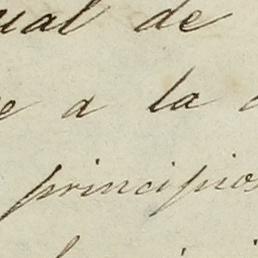 ual de
e a la
principios